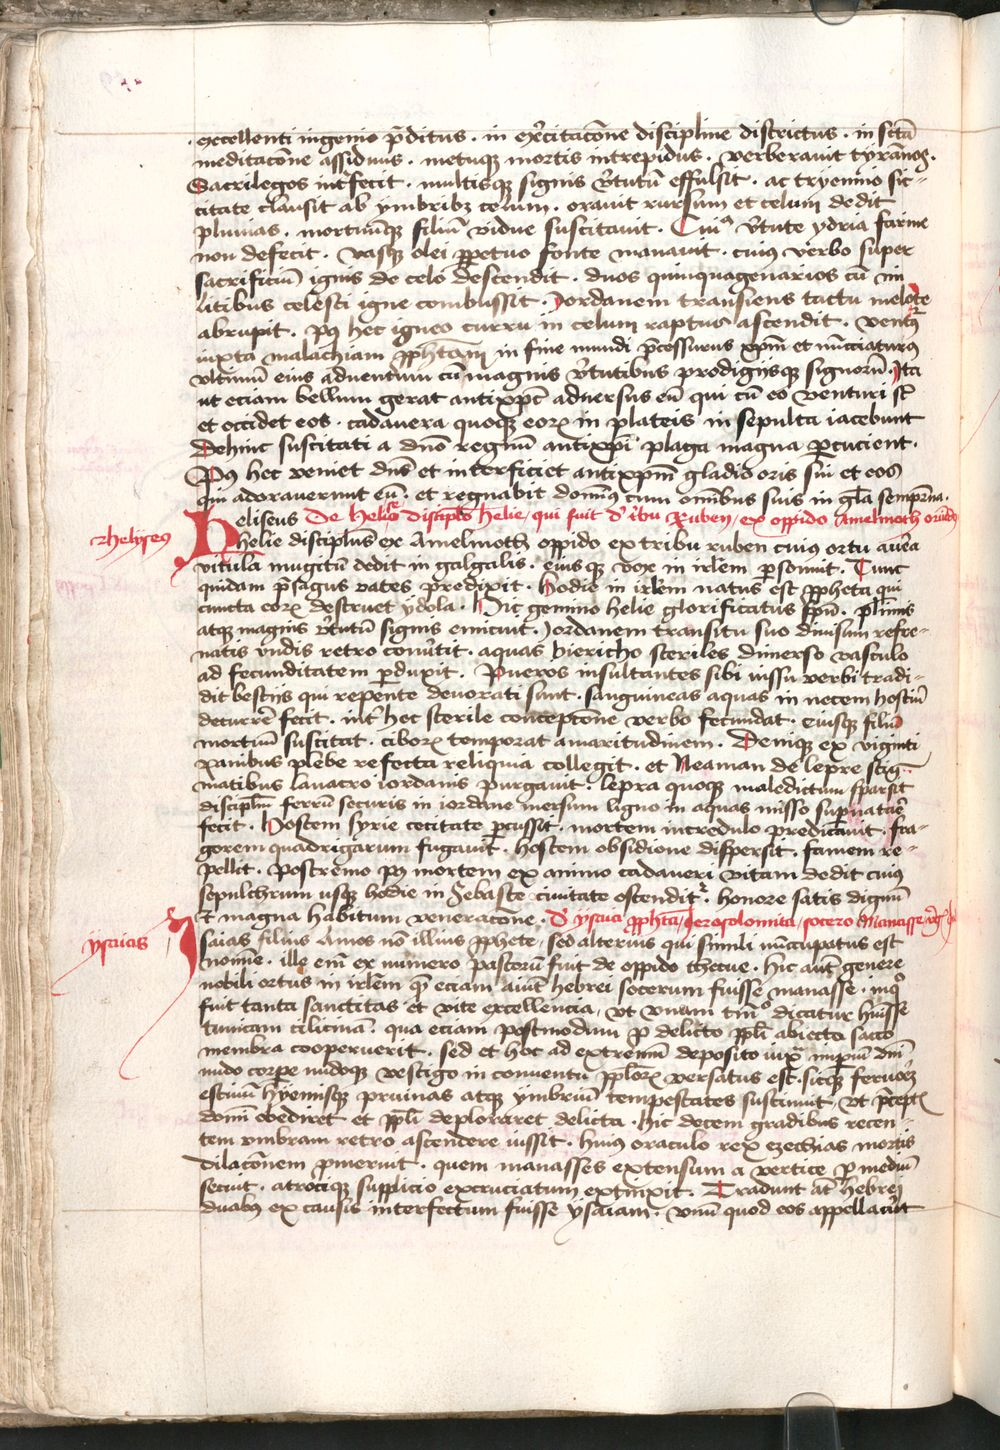 excellenti ingenio p̄ditus · in ex̄citacōne discipline districtus · in sc̄tā
meditacōne assiduus · metuqꝫ mortis intrepidus · verberauit tyrānos ·
Sacrilegos int̄fecit · multisqꝫ signis v̄tutū effulsit · ac tryennio sic-
citate clausit ab ymbribꝫ celum · orauit rursum et celum dedit
pluuias · mortuūqꝫ filiū vidue suscitauit · Cuiꝰ v̄tute ydria farine
non defecit · vasqꝫ olei ꝑpetuo fonte manauit · cuius verbo super
sacrificiū ignis de celo descendit · duos quinquagenarios cū mi
litibus celesti igne combussit · Jordanem transiens tactu melote
abrupit · pꝰ hec igneo curru in celum raptus ascendit · ventꝰꝝ
iuxta malachiam ꝓphetam in fine mundi p̄cessurus xp̄m et nūcciaturꝰ
vltimū eius aduentum cū magnis v̄tutibus prodigiisqꝫ signorū · Ita
ut eciam bellum gerat antixp̄c aduersus eū qui cū eo venturi sūt
et occidet eos · cadauera quoqꝫ eoꝝ in plateis in sepulta iacebunt
Dehinc suscitati a dn̄o regnū antixp̄i plaga magna ꝑcucient ·
Pꝰ hec veniet dn̄s et interficiet antixp̄m gladio oris sui et eos
qui adorauerunt eū · et regnabit dominꝰ cum om̄ibus suis in gl̄a semp̄na ·
heliseus De heliseo discipl̄o helie, qui fuit d' tbu Ruben, ex oppido Amelmoth oriūdꝰ
rhelyseꝰ
helie disciplus ex Amelmoth oppido ex tribu ruben cuius ortu aurea
vitula mugitū dedit in galgalis · eiusqꝫ vox in irl̄em ꝑsonuit · Tunc
quidam p̄sagus vates predixit · hodie in irl̄em natus est ꝓpheta qui
cuncta eoꝝ destruet ydola · Hic gemino helie glorificatus sp̄u · pl̄imis
atqꝫ magnis v̄tutū signis emicuit · Jordanem transitu suo diuisum refre-
natis vndis retro conūtit · aquas hiericho steriles dimerso vasculo
ad fecunditatem ꝑduxit · Pueros insultantes sibi iussu verbi tradi-
dit bestijs qui repente deuorati sunt · sanguineas aquas in necem hostiū
decurrē fecit · int̄ hec sterile conceptōne verbo fecundat · eiusqꝫ filiū
mortuū suscitat · ciboꝝ temporat amaritudinem · Deniqꝫ ex viginti
panibus plebe refecta reliquia collegit · et Neaman de lepre stig-
matibus lauacro iordanis purgauit · lepra quoqꝫ maledictum sparsit
discipl̄m ferrū securis in iordane mersum ligno in aquas misso suꝑnatare
fecit · Hostem syrie cecitate ꝑcussit · mortem incredulo predicauit · fra-
gorem quadrigarum fugauit · hostem obsidione dispersit · famem re-
pellit · postremo pꝰ mortem ex animo cadaueri vitam dedit cuius
sepulchrum usqꝫ hodie in Sebaste ciuitate ostendit᷑ · honore satis dignū
et magna habitum veneracōne · D' ysaia ꝓphta, Jerosolomita, socero Manasse,
ysaias
Isaias filius Amos nō illius ꝓphete, sed alterius qui simili nūccupatus est
nomine · ille em̄ ex numero pastorū fuit de oppido thecue · hic aut̄ genere
nobili ortus in irl̄em q̄ eciam aiūt hebrei socerum fuisse manasse · inqꝰ
fuit tanta sanctitas et vite excellencia, vt vnam tm̄ dicatur huisse
tunicam cilicina · qua eciam postmodum ꝓ delicto ppl̄i abiecta sacco
membra cooperuerit · sed et hoc ad extremū deposito iux̄ imꝑiū dn̄i
nudo corpe nudoqꝫ vestigo in conuentu ppl̄oꝝ versatus est · sicqꝫ feruoꝝ
estiuū hyemisqꝫ pruinas atqꝫ ymbriū tempestates sustinuit, vt p̄ceptis
domī obediret et ppl̄i deploraret delicta · hic decem gradibus recen-
tem vmbram retro ascendere iussit · huius oraculo rex ezechias mortis
dilacōnem ꝓmeruit · quem manasses extensum a vertice ꝑ mediū
secuit · atrociqꝫ supplicio excruciatum extinxit · Tradunt at̄ hebrei
duabus ex causis interfectum fuisse ysaiam · vnū quod eos appellauit